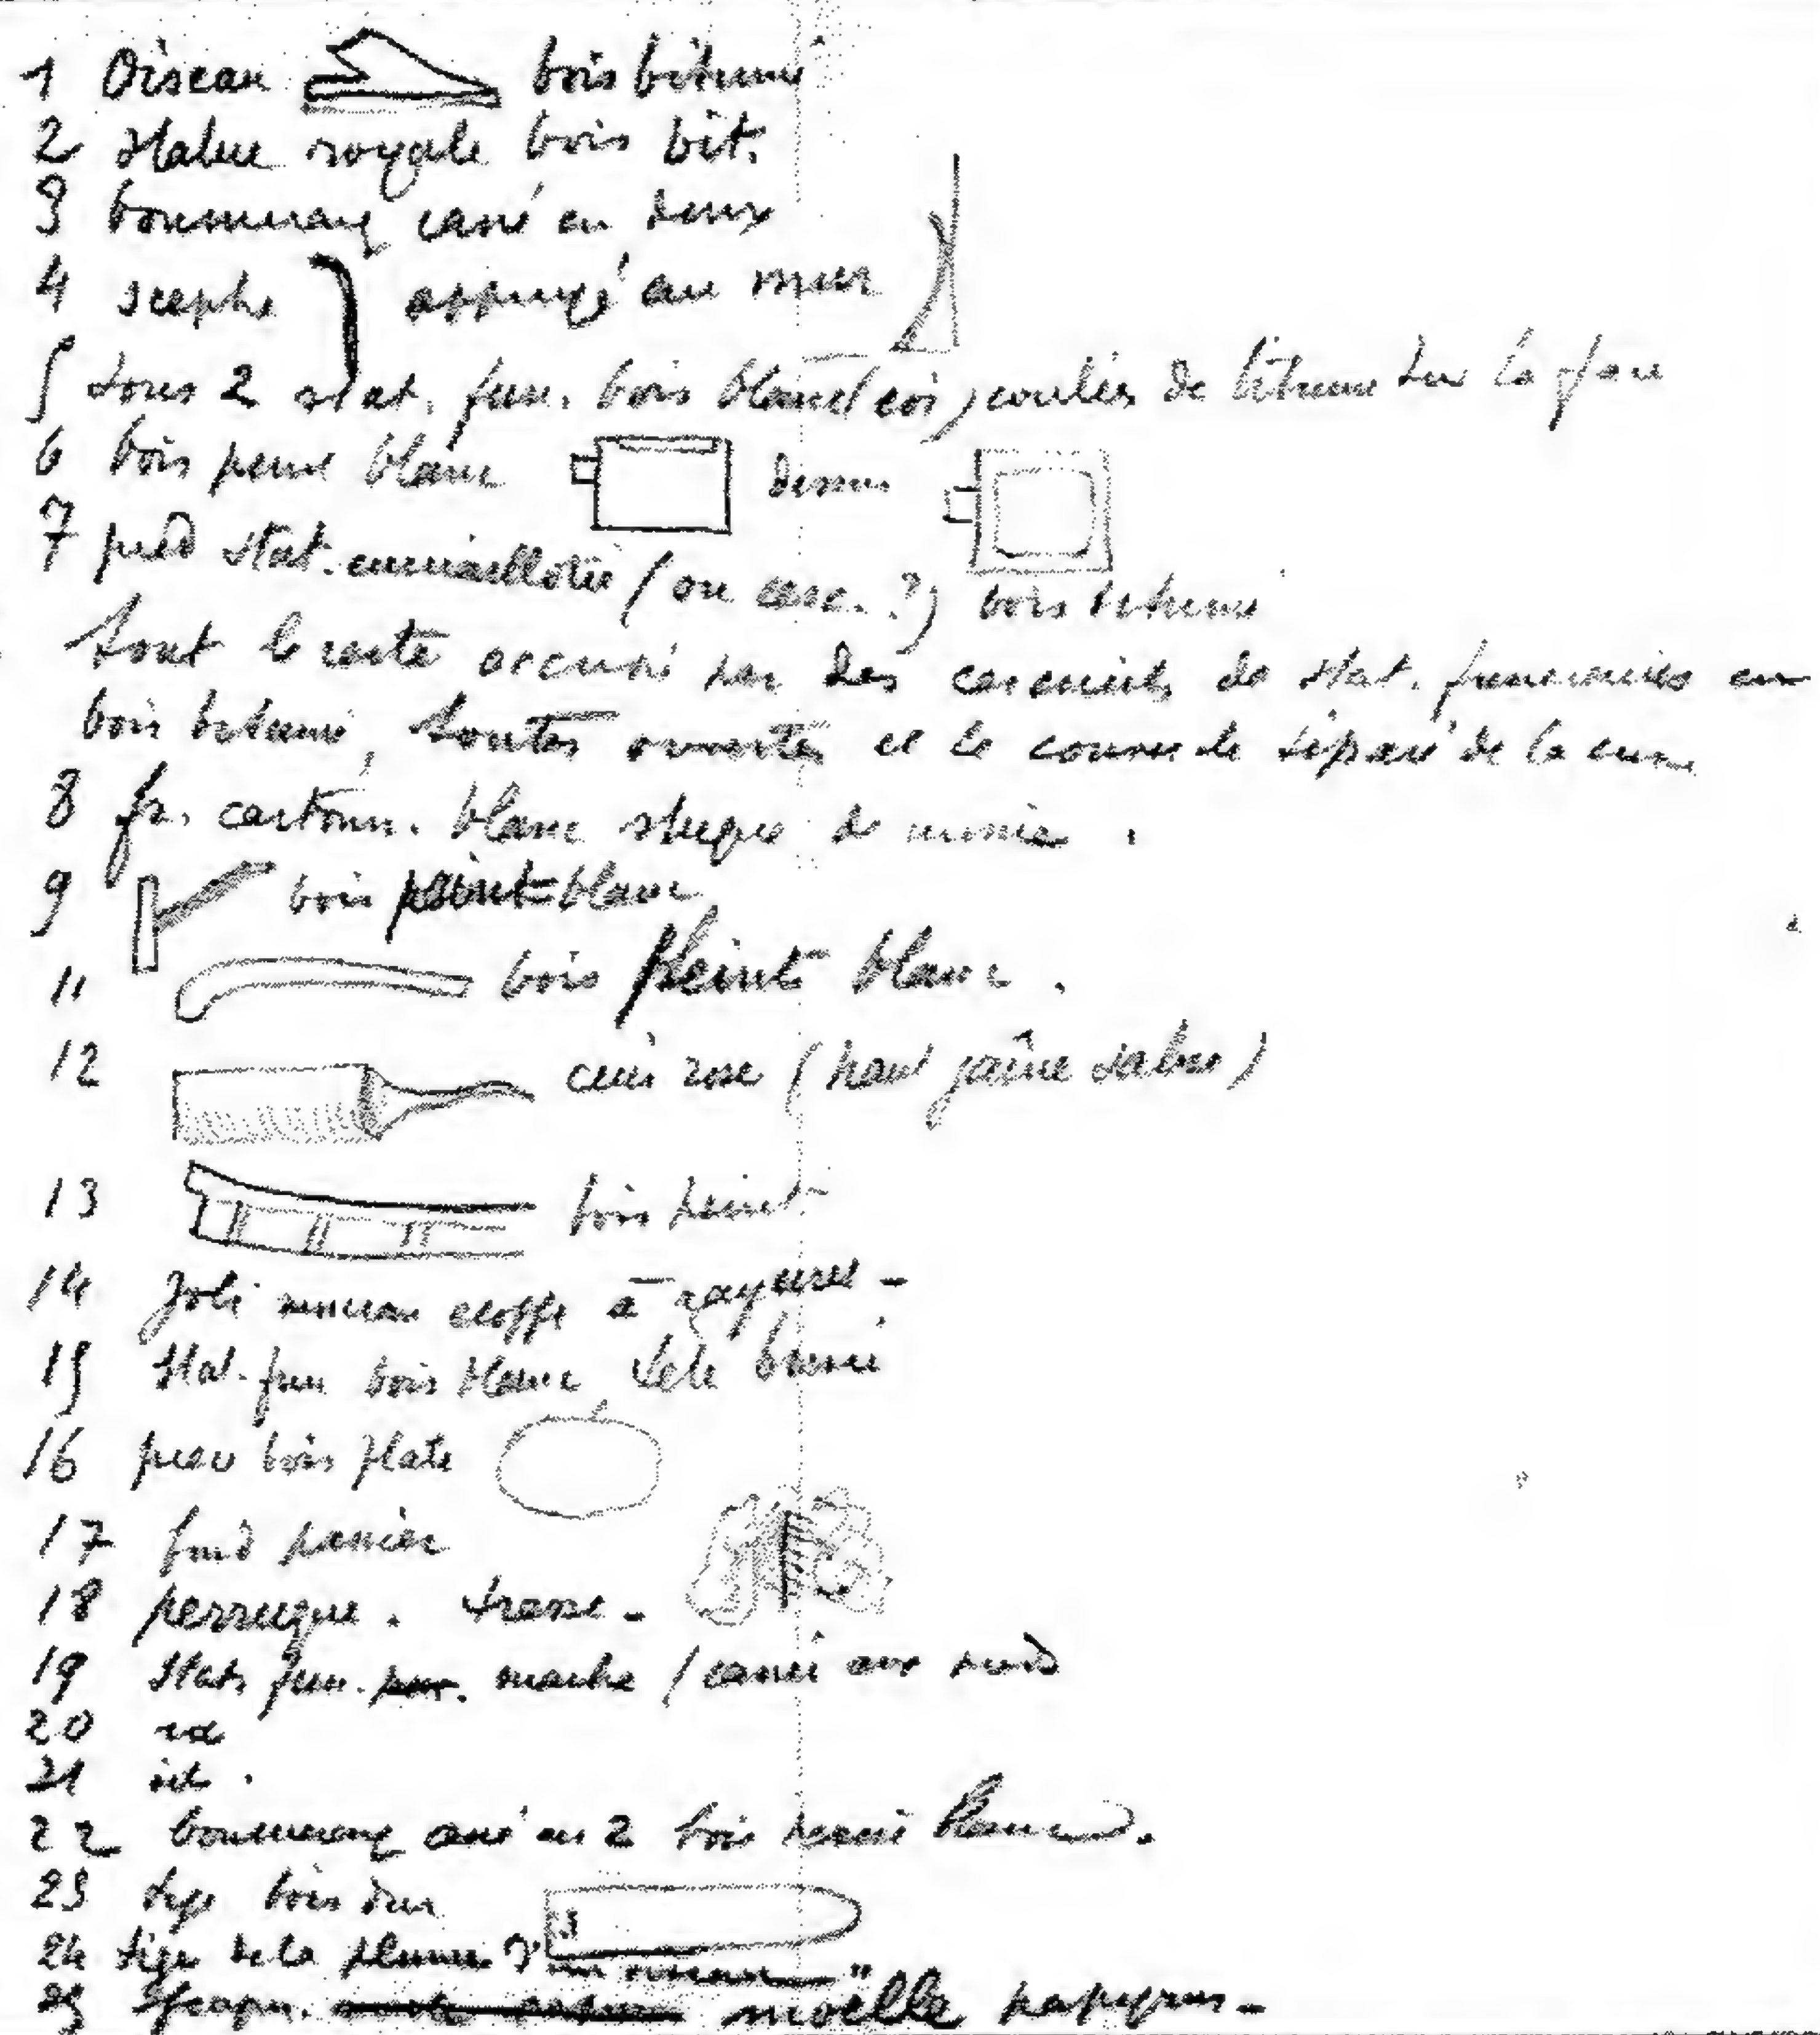 1 Oiseau bois bitumé
2 statue royale bois bit.
3 boumerang cassé en deux
4 sceptre appuyé au mur
5 sous 2 stat. fun. bois blanc coulées de bitume sur la face
6 bois peint blanc dessus
7 pied stat. emmaillotée (ou cerc. ?) bois bitumé
tout le reste occupé par des cercueils de stat. funéraires en
bois bitumé, toutes ouvertes et le couvercle séparé de la cuve
8 fr. cartonn. blanc de momie.
9 bois peint blanc
11 bois peint blanc.
12 cuir rose (haut jaune sabre)
13 bois peint
14 Joli morceau etoffe à rayures -
15 stat. fun bois blanc, tête
16 bois plate
17 fond panier
18 perruque. tresse -
19 Stat. fun. marche / cassée aux
20 id
21 id.
22 boumerang cassé en 2 bois peint blanc.
23 tige bois dur
24 tige de la plume ?
25 moëlle papyrus -